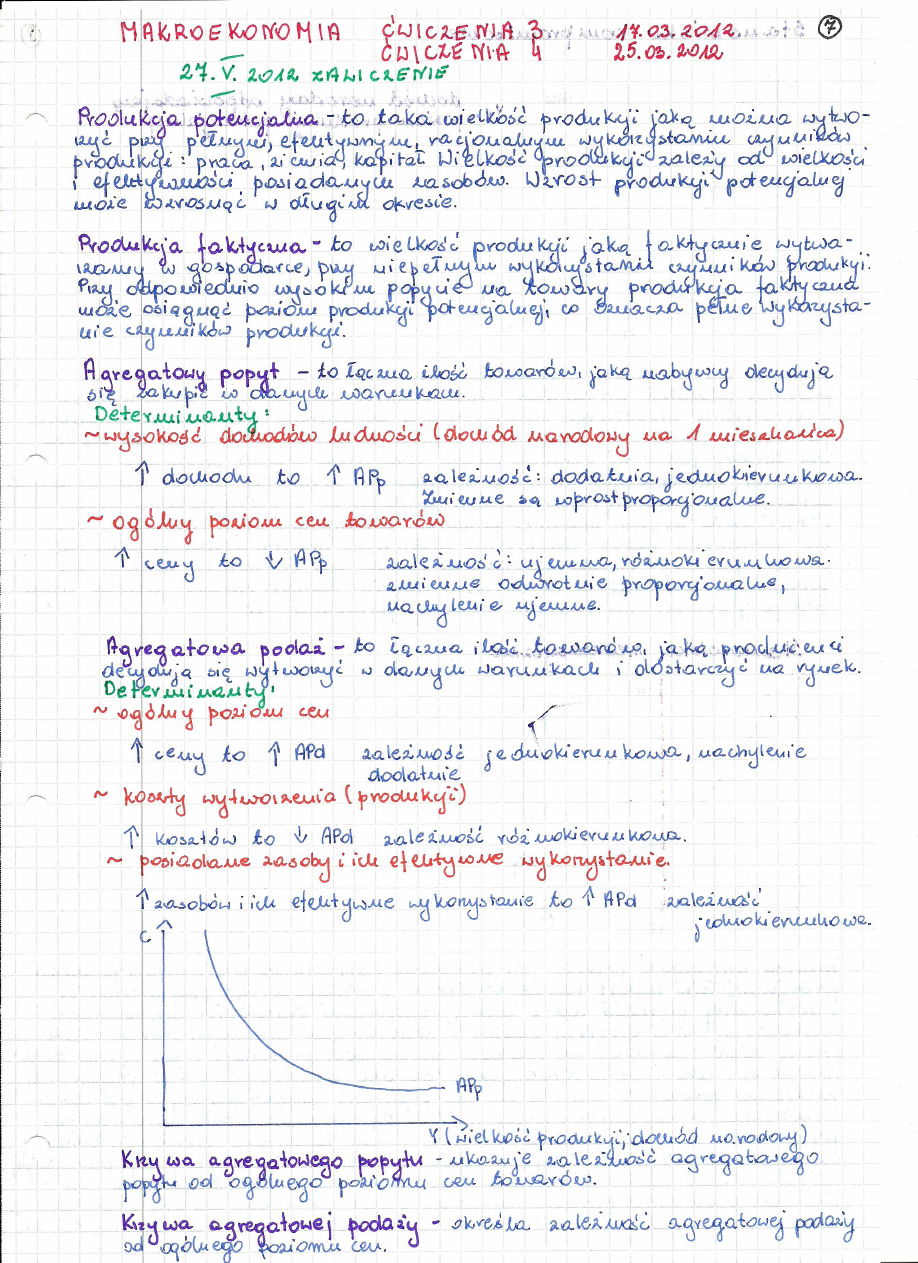 MAKROEKONOMIA ĆWICZENIA 3 17.03.2012. 7
ĆWICZENIA 4 25.03.2012
27.V.2012 ZALICZENIE
Produkcja potencjalna - to taka wielkość produkcji jaką można wytwo-
rzyć przy pełnym, efektywnym, racjonalnym wykorzystaniu czynników
produkcji: praca, ziemia, kapitał. Wielkość produkcji zależy od wielkości
i efektywności posiadanych zasobów. Wzrost produkcji potencjalnej
może wzrosnąć w długim okresie.
Produkcja faktyczna - to wielkość produkcji jaką faktycznie wytwa-
rzamy w gospodarce, przy niepełnym wykorzystaniu czynników produkcji.
Przy odpowiednio wysokim popycie na towary produkcja faktyczna
może osiągnąć poziom produkcji potencjalnej, co oznacza pełne wykorzysta-
nie czynników produkcji.
Agregatowy popyt - to łączna ilość towarów, jaką nabywcy decydują
się zakupić w danych warunkach.
Determinanty:
~ wysokość dochodów ludności (dochód narodowy na 1 mieszkańca)
↑ dochodu to ↑ APp zależność: dodatnia, jednokierunkowa.
Zmienne są wprostproporcjonalne.
~ ogólny poziom cen towarów
↑ ceny to ↓ APp zależność: ujemna, różnokierunkowa.
zmienne odwrotnie proporcjonalne,
nachylenie ujemne.
Agregatowa podaż - to łączna ilość towarów, jaką producenci
decydują się wytworzyć w danych warunkach i dostarczyć na rynek.
Determinanty:
~ ogólny poziom cen
↑ ceny to ↑ APd zależność jednokierunkowa, nachylenie
dodatnie
~ koszty wytworzenia (produkcji)
↑ kosztów to ↓ APd zależność różnokierunkowa.
~ posiadane zasoby i ich efektywne wykorzystanie.
↑ zasobów i ich efektywne wykorzystanie to ↑ APd zależność
jednokierunkowa.
C
APp
Y (wielkość produkcji, dochód narodowy)
Krzywa agregatowego popytu - ukazuje zależność agregatowego
popytu od ogólnego poziomu cen towarów.
Krzywa agregatowej podaży - określa zależność agregatowej podaży
od ogólnego poziomu cen.